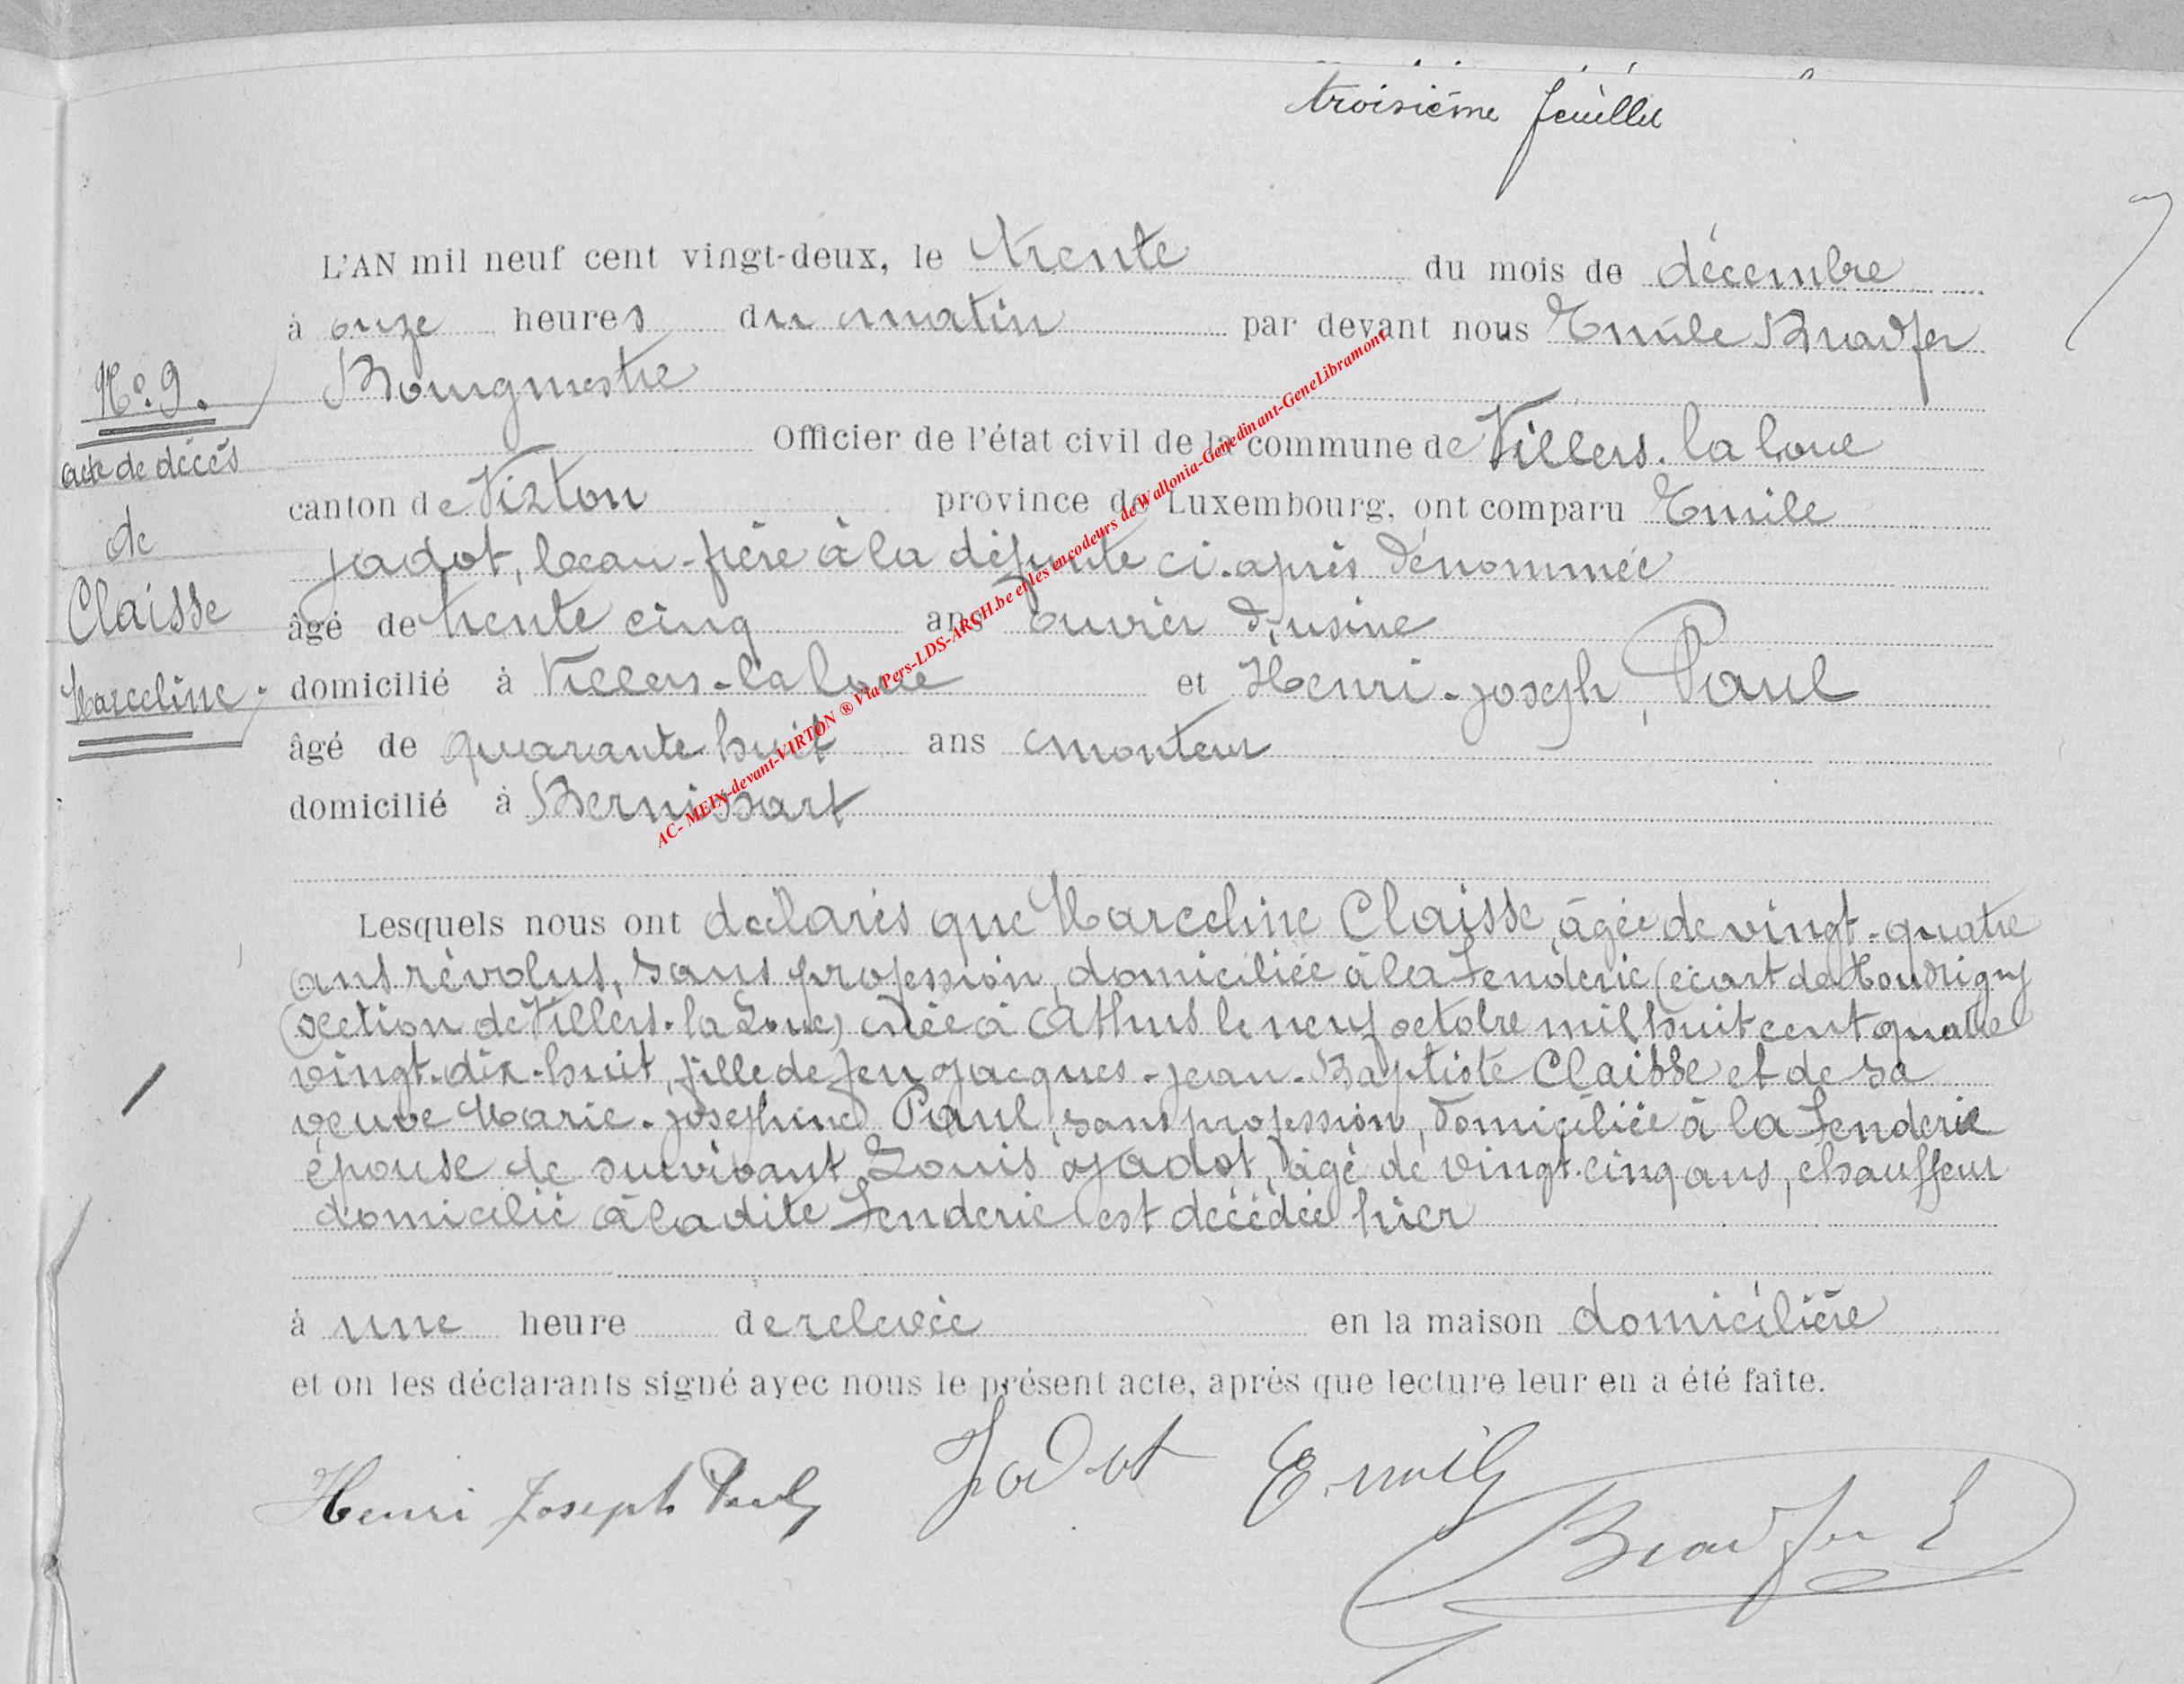 troisième feuillet
L'AN mil neuf cent vingt-deux, le trente du mois de décembre
à onze heures du matin par devant nous Emile Bradfer
Bourgmestre
Officier de l'état civil de la commune de Villers-la Loue
canton de Virton province de Luxembourg, ont comparu Emile
Jadot, beau-frère à la défunte ci-après dénommée
âgé de trente cinq ans ouvrier d'usine
domicilié à Villers-la Loue et Henri-Joseph, Paul
âgé de quarante huit ans monteur
domicilié à Bernissart
N° 9.
acte de décès
de
Claisse
Marceline
Lesquels nous ont déclarés que Marceline Claisse, âgée de vingt-quatre
ans révolus, sans profession, domiciliée à la Fenderie (écart de Houdrigny
(section de Villers-la Loue) née à Athus le neuf octobre mil huit cent quatre
vingt-dix-huit, fille de feu Jacques-Jean-Baptiste Claisse et de sa
veuve Marie-Joséphine Paul, sans profession, domiciliée à la Fenderie
épouse de survivant Louis Jadot, âgé de vingt-cinq ans, chauffeur
domicilié à la dite Fenderie est décédée hier
à une heure de relevée en la maison domicilière
et on les déclarants signé avec nous le présent acte, après que lecture leur en a été faite.
Henri Joseph Paul Jadot Emile
Bradfer E
AC- MEIX-devant-VIRTON ® Via Pers-LDS-ARCH.be et les encodeurs de Wallonia-Genedinant-GeneLibramont